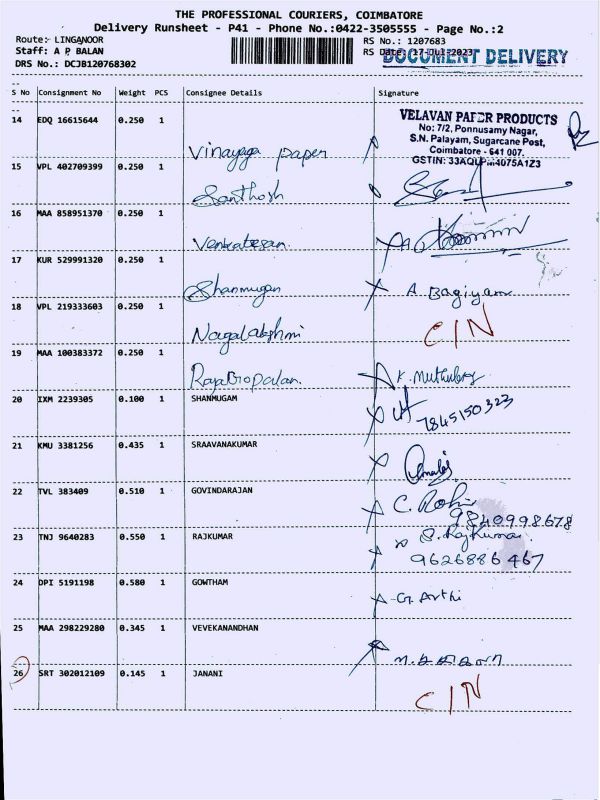 THE PROFESSIONAL COURIERS, COIMBATORE
Delivery Runsheet - P41 - Phone No.:0422-3505555 - Page No.:2
Route:- LINGANOOR
Staff: A P. BALAN
DRS No.: DCJB120768302
RS No.: 1207683
RS Date: 17-Jul-2023
DOCUMENT DELIVERY
S No Consignment No Weight PCS Consignee Details Signature
14 EDQ 16615644 0.250 1 Vinayaga paper
VELAVAN PAPER PRODUCTS
No: 7/2, Ponnusamy Nagar,
S.N. Palayam, Sugarcane Post,
Coimbatore - 641 007.
GSTIN: 33AQLP 4075A1Z3
15 VPL 402709399 0.250 1 Santhosh
16 MAA 858951370 0.250 1 Venkatesan
17 KUR 529991320 0.250 1 Shanmugan A. Bagiyam
18 VPL 219333603 0.250 1 Nagalakshmi C/N
19 MAA 100383372 0.250 1 RajaGopalan K. Muthu
20 IXM 2239305 0.100 1 SHANMUGAM 7845150323
21 KMU 3381256 0.435 1 SRAAVANAKUMAR
22 TVL 383409 0.510 1 GOVINDARAJAN C. Rohi
9840998678
23 TNJ 9640283 0.550 1 RAJKUMAR S. Rajkumar
9626886467
24 DPI 5191198 0.580 1 GOWTHAM G. Arthi
25 MAA 298229280 0.345 1 VEVEKANANDHAN
26 SRT 302012109 0.145 1 JANANI C/N